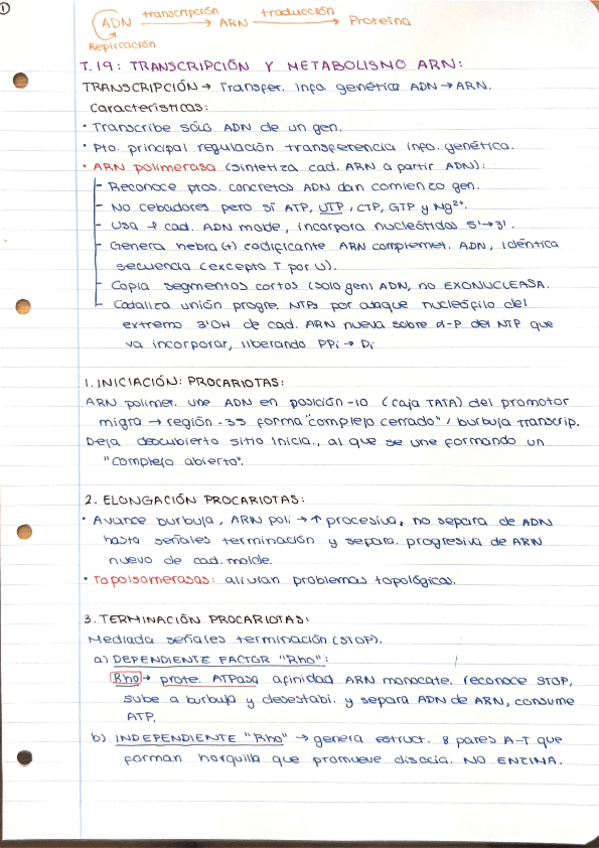 1
transcripción traducción
ADN → ARN → Proteína
Replicación
T.19: TRANSCRIPCIÓN Y METABOLISMO ARN:
TRANSCRIPCIÓN → Transfer. Info genética ADN → ARN.
Características:
· Transcribe SÓLO ADN de un gen.
· Pto. principal regulación transferencia info. genética.
· ARN polimerasa (sintetiza cad. ARN a partir ADN):
- Reconoce ptos. concretos ADN dan comienzo gen.
- No cebadores pero sí ATP, UTP, CTP, GTP y Mg2+.
- Usa 1 cad. ADN molde, incorpora nucleótidos 5'→3'.
- Genera hebra (+) codificante ARN complemet. ADN, idéntica
secuencia (excepto T por U).
- Copia segmentos cortos (solo gen) ADN, no EXONUCLEASA.
- Cataliza unión progre. NTPs por ataque nucleófilo del
extremo 3'OH de cad. ARN nueva sobre α-P del NTP que
va incorporar, liberando PPi → Pi
1. INICIACIÓN: PROCARIOTAS:
ARN polimer. une ADN en posición -10 (caja TATA) del promotor
migra → región -35 forma "complejo cerrado" / burbuja transcrip.
Deja descubierto sitio inicia., al que se une formando un
"complejo abierto".
2. ELONGACIÓN PROCARIOTAS:
· Avance burbuja, ARN poli → ↑ procesiva, no separa de ADN
hasta señales terminación y separa. progresiva de ARN
nuevo de cad. molde.
· Topoisomerasas: alivian problemas topológicos.
3. TERMINACIÓN PROCARIOTAS:
Mediada señales terminación (STOP).
a) DEPENDIENTE FACTOR "Rho":
Rho → prote. ATPasa afinidad ARN monocate. reconoce STOP,
sube a burbuja y desestabi. y separa ADN de ARN, consume
ATP.
b) INDEPENDIENTE "Rho" → genera estruct. 8 pares A-T que
forman horquilla que promueve disocia. NO ENZIMA.